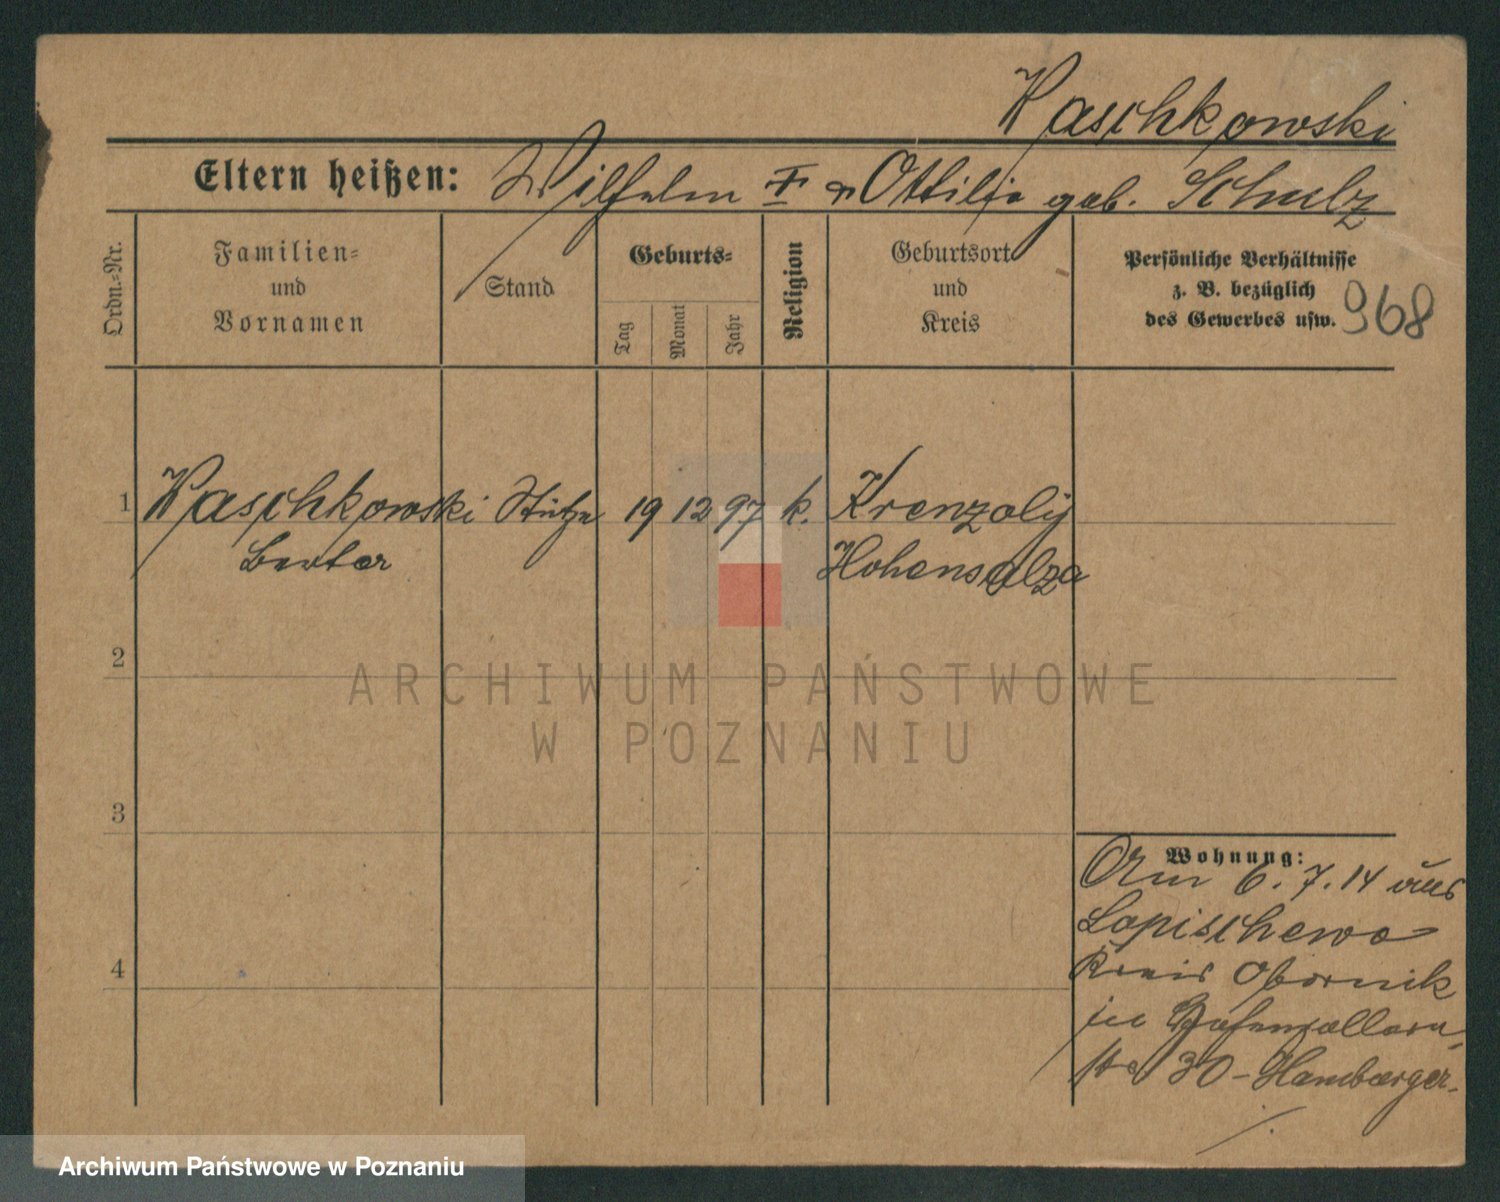 Waschkowski
Eltern heißen: Wilhelm u. Ottilie geb. Schulz
Ordn.-Nr.
Familien-
und
Vornamen
Stand
Geburts-
Tag
Monat
Jahr
Religion
Geburtsort
und
Kreis
Persönliche Verhältnisse
z. B. bezüglich
des Gewerbes usw.
968
1 Waschkowski Stütze 19 12 97 k. Krenzoly
Hohensalza
2
3
4
Wohnung:
Am 6. 7. 14 aus
Lopischewo
Kreis Obornik
in Hohenzollern
str 30 - Hamburger.
ARCHIWUM PAŃSTWOWE
W POZNANIU
Archiwum Państwowe w Poznaniu